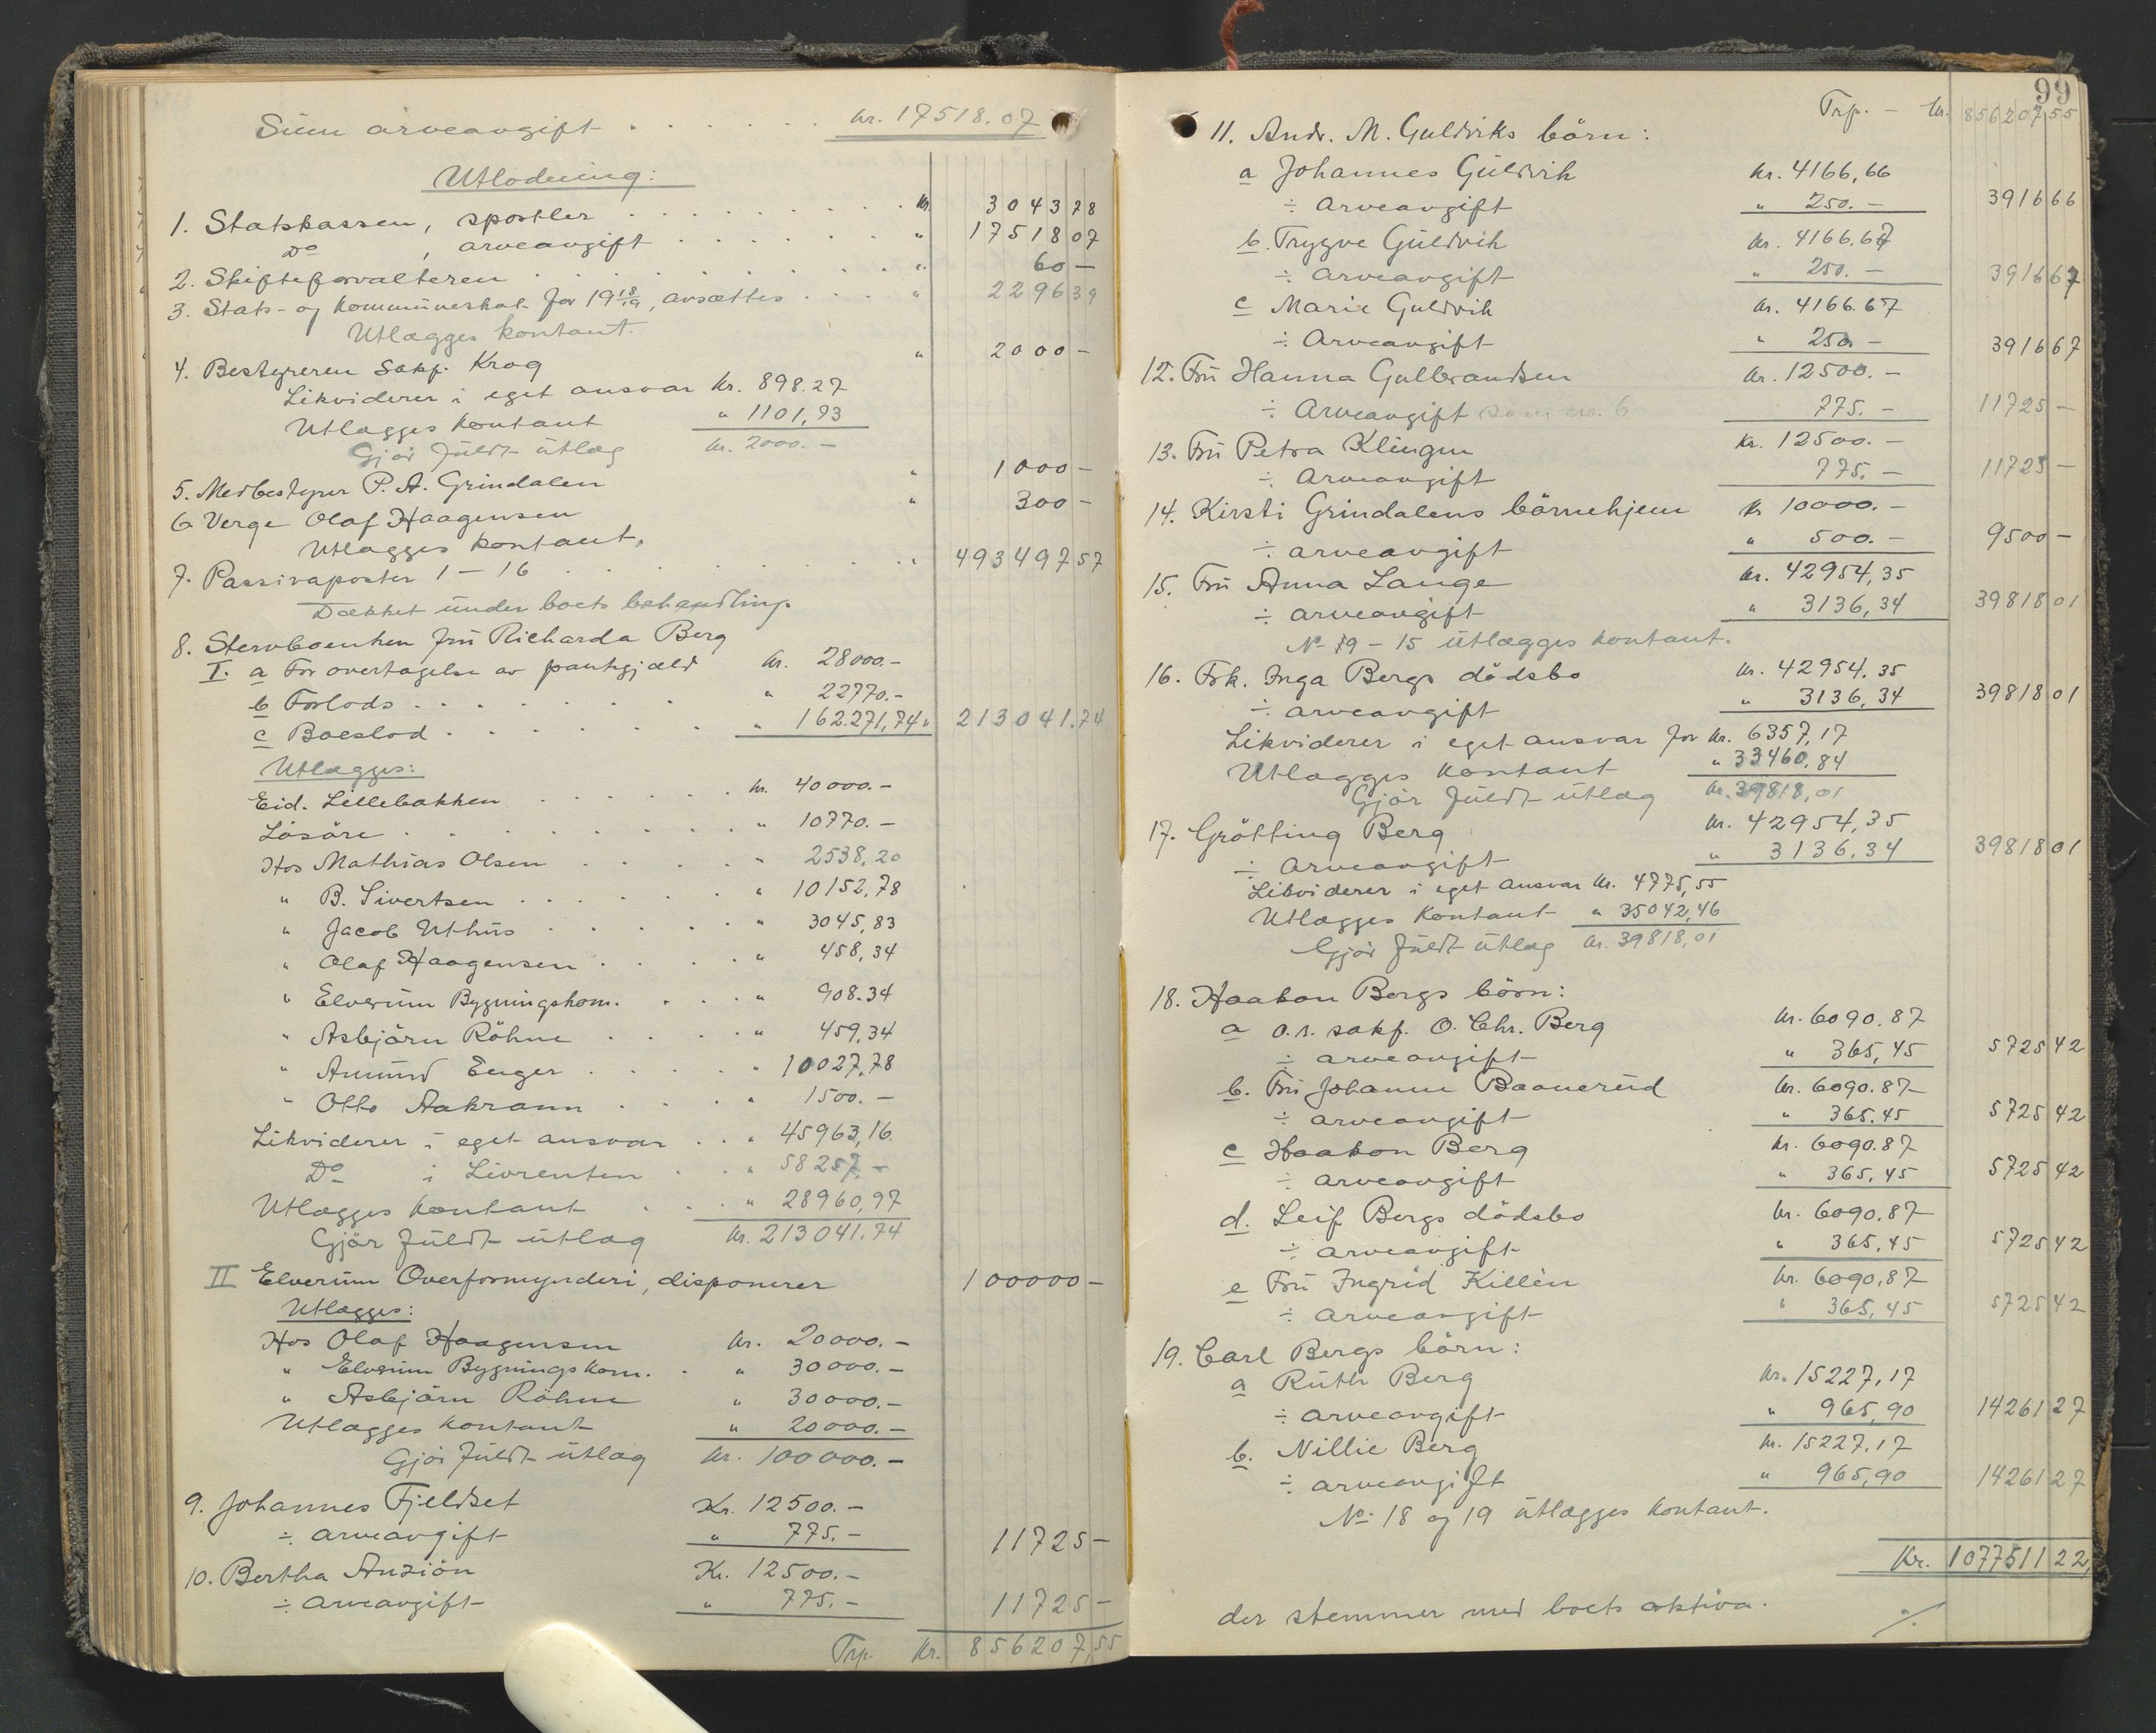 Sum arveavgift . . . . . . kr. 17518.07
Utlodning:
1. Statskassen, sportler . . . . . . . . . kr. 3043 78
Do , arveavgift . . . . . . . " 17518 07
2. Skifteforvalteren . . . . . . . . . . " 60 —
3. Stats- og kommuneskat for 19 18/19, avsættes . . . . " 2296 39
Utlægges kontant.
4. Bestyreren Sakf. Krog " 2000 —
Likviderer i eget ansvar kr. 898.27
Utlægges kontant " 1101,73
Gjör fuldt utlæg kr. 2000.—
5. Medbestyrer P. A. Grindalen " 1000 —
6 Verge Olaf Haagensen " 300 —
Utlægges kontant.
7. Passivaposter 1 — 16 . . . . . . . . . " 493497 57
Dækket under boets behandling.
8. Stervboenken fru Richarda Berg
I. a For overtagelse av pantegjæld kr. 28000.—
b Forlods . . . . . . . " 22770.—
c Boeslod . . . . . . . " 162.271,74 " 213041.74
Utlægges:
Eid. Lillebakken . . . . . . kr. 40000.—
Lösöre . . . . . . . . " 10770.—
Hos Mathias Olsen . . . . . " 2538,20
" B. Sivertsen . . . . . . " 10152,78
" Jacob Uthus . . . . . " 3045,83
" Olaf Haagensen . . . . " 458,34
" Elverum Bygningskom. . . . " 908.34
" Asbjörn Röhne . . . . " 459,34
" Amund Enger . . . . . " 10027,78
" Otto Aakrann . . . . " 1500.—
Likviderer i eget ansvar . . " 45963,16
Do i Livrenten . . " 58257.—
Utlægges kontant . . . " 28960,97
Gjör fuldt utlæg kr. 213041.74
II Elverum Overformynderi, disponerer 100000 —
Utlægges:
Hos Olaf Haagensen kr. 20000.—
" Elverum Bygningskom. . " 30000.—
" Asbjörn Röhne " 30000.—
Utlægges kontant " 20000.—
Gjör fuldt utlæg kr. 100000.—
9. Johannes Fjeldset Kr. 12500.—
÷ arveavgift " 775.— 11725 —
10. Bertha Anziön Kr. 12500.—
÷ arveavgift " 775.— 11725 —
Trp. Kr. 856207,55
99
Trp. — kr. 856207 55
11. Andr. M. Guldviks börn:
a Johannes Guldvik kr. 4166,66
÷ arveavgift " 250.— 3916 66
b. Trygve Guldvik kr. 4166.67
÷ arveavgift " 250.— 3916 67
c Marie Guldvik kr. 4166.67
÷ Arveavgift " 250.— 3916 67
12. Fru Hanna Gulbrandsen kr. 12500.—
÷ Arveavgift som no. 6 775.— 11725 —
13. Fru Petra Klingen Kr. 12500.—
÷ Arveavgift 775.— 11725 —
14. Kirsti Grindalens börnehjem Kr 10000.—
÷ arveavgift " 500.— 9500 —
15. Fru Anna Lange kr. 42954,35
÷ arveavgift " 3136,34 39818 01
No 9 – 15 utlægges kontant.
16. Frk. Inga Bergs dödsbo kr. 42954.35
÷ arveavgift " 3136,34 39818 01
Likviderer i eget ansvar for kr. 6357,17
Utlægges kontant " 33460,84
Gjör fuldt utlæg kr. 39818,01
17. Grötting Berg kr. 42954,35
÷ Arveavgift " 3136.34 39818 01
Likviderer i eget ansvar kr. 4775,55
Utlægges kontant " 35042,46
Gjör fuldt utlæg kr. 39818,01
18. Haakon Bergs börn:
a o.r. sakf. O. Chr. Berg kr. 6090.87
÷ arveavgift " 365,45 5725 42
b. Fru Johanne Baanerud kr. 6090.87
÷ arveavgift " 365.45 5725 42
c Haakon Berg kr. 6090.87
÷ arveavgift " 365,45 5725 42
d. Leif Bergs dödsbo kr. 6090.87
÷ arveavgift " 365,45 5725 42
e Fru Ingrid Killèn kr. 6090,87
÷ arveavgift " 365,45 5725 42
19. Carl Bergs börn:
a Ruth Berg kr. 15227,17
÷ arveavgift " 965,90 14261 27
b. Nillie Berg kr. 15227,17
÷ arveavgift " 965,90 14261 27
No. 18 og 19 utlægges kontant.
Kr. 1077511 22
der stemmer med boets aktiva.